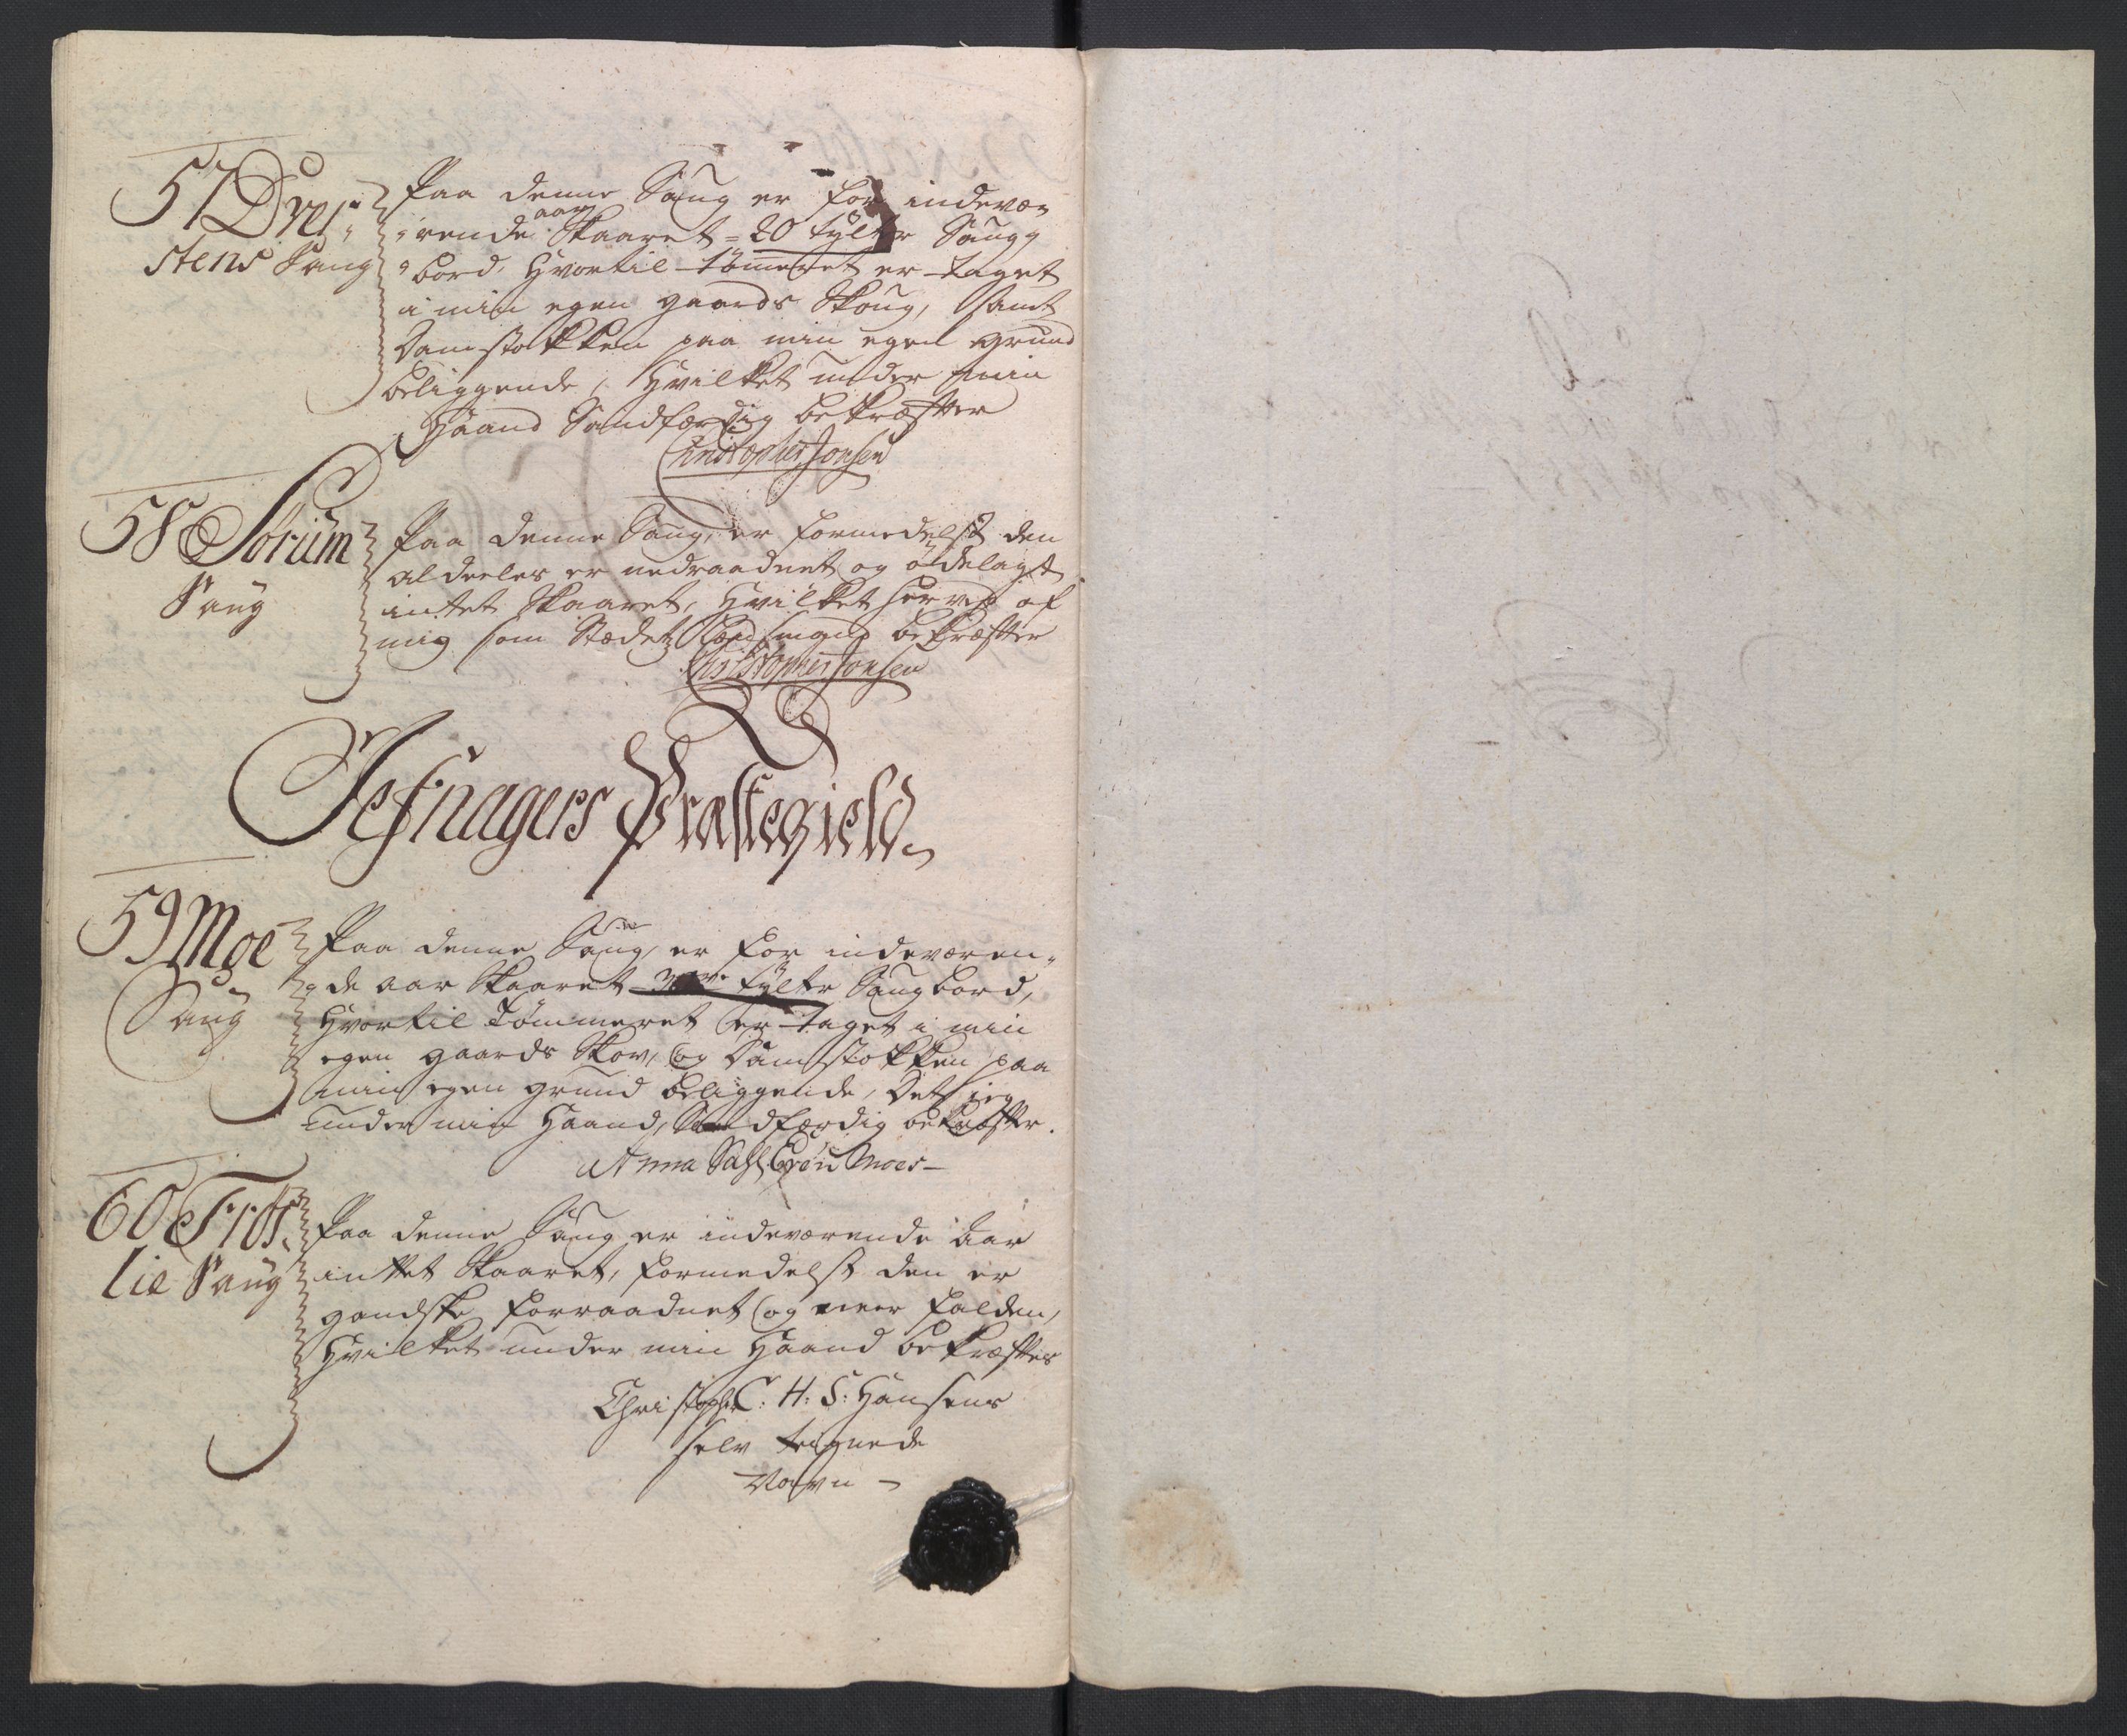 57 Drei-
stens Saug
Paa denne Saug er for indevæ-
rende aar Skaaret = 20 tylter Saug
bord, Hvortil tømeret er taget
i min egen gaards Skoug, samt
Damstokken paa min egen grund
beliggende, Hvilket under min
Haand Sandfærdig bekræfter
Christopher Jonsen
58 Sørum
Saug
Paa denne Saug, er formedelst den
aldeeles er nedraadnet og ødelagt
intet Skaaret, Hvilket herved af
mig som Stædets bekræfter
Christopher Jonsen
Jefnagers Præstegield
59 Moe
Saug
Paa denne Saug, er for indeværen-
de aar Skaaret tylter Saugbord,
Hvortil Tømmeret er taget i min
egen gaards Skov, og Damstokken paa
min egen grund beliggende, Det jeg
under min Haand, Sandfærdig bekræfter.
Anna Sahl Moes
60
lie Saug
Paa denne Saug er indeværende Aar
intet Skaaret, formedelst den er
gandske forraadnet og neer falden,
Hvilket under min Haand bekræftes
Christopher C: H: S: Hansens
selv tegnede
Navn